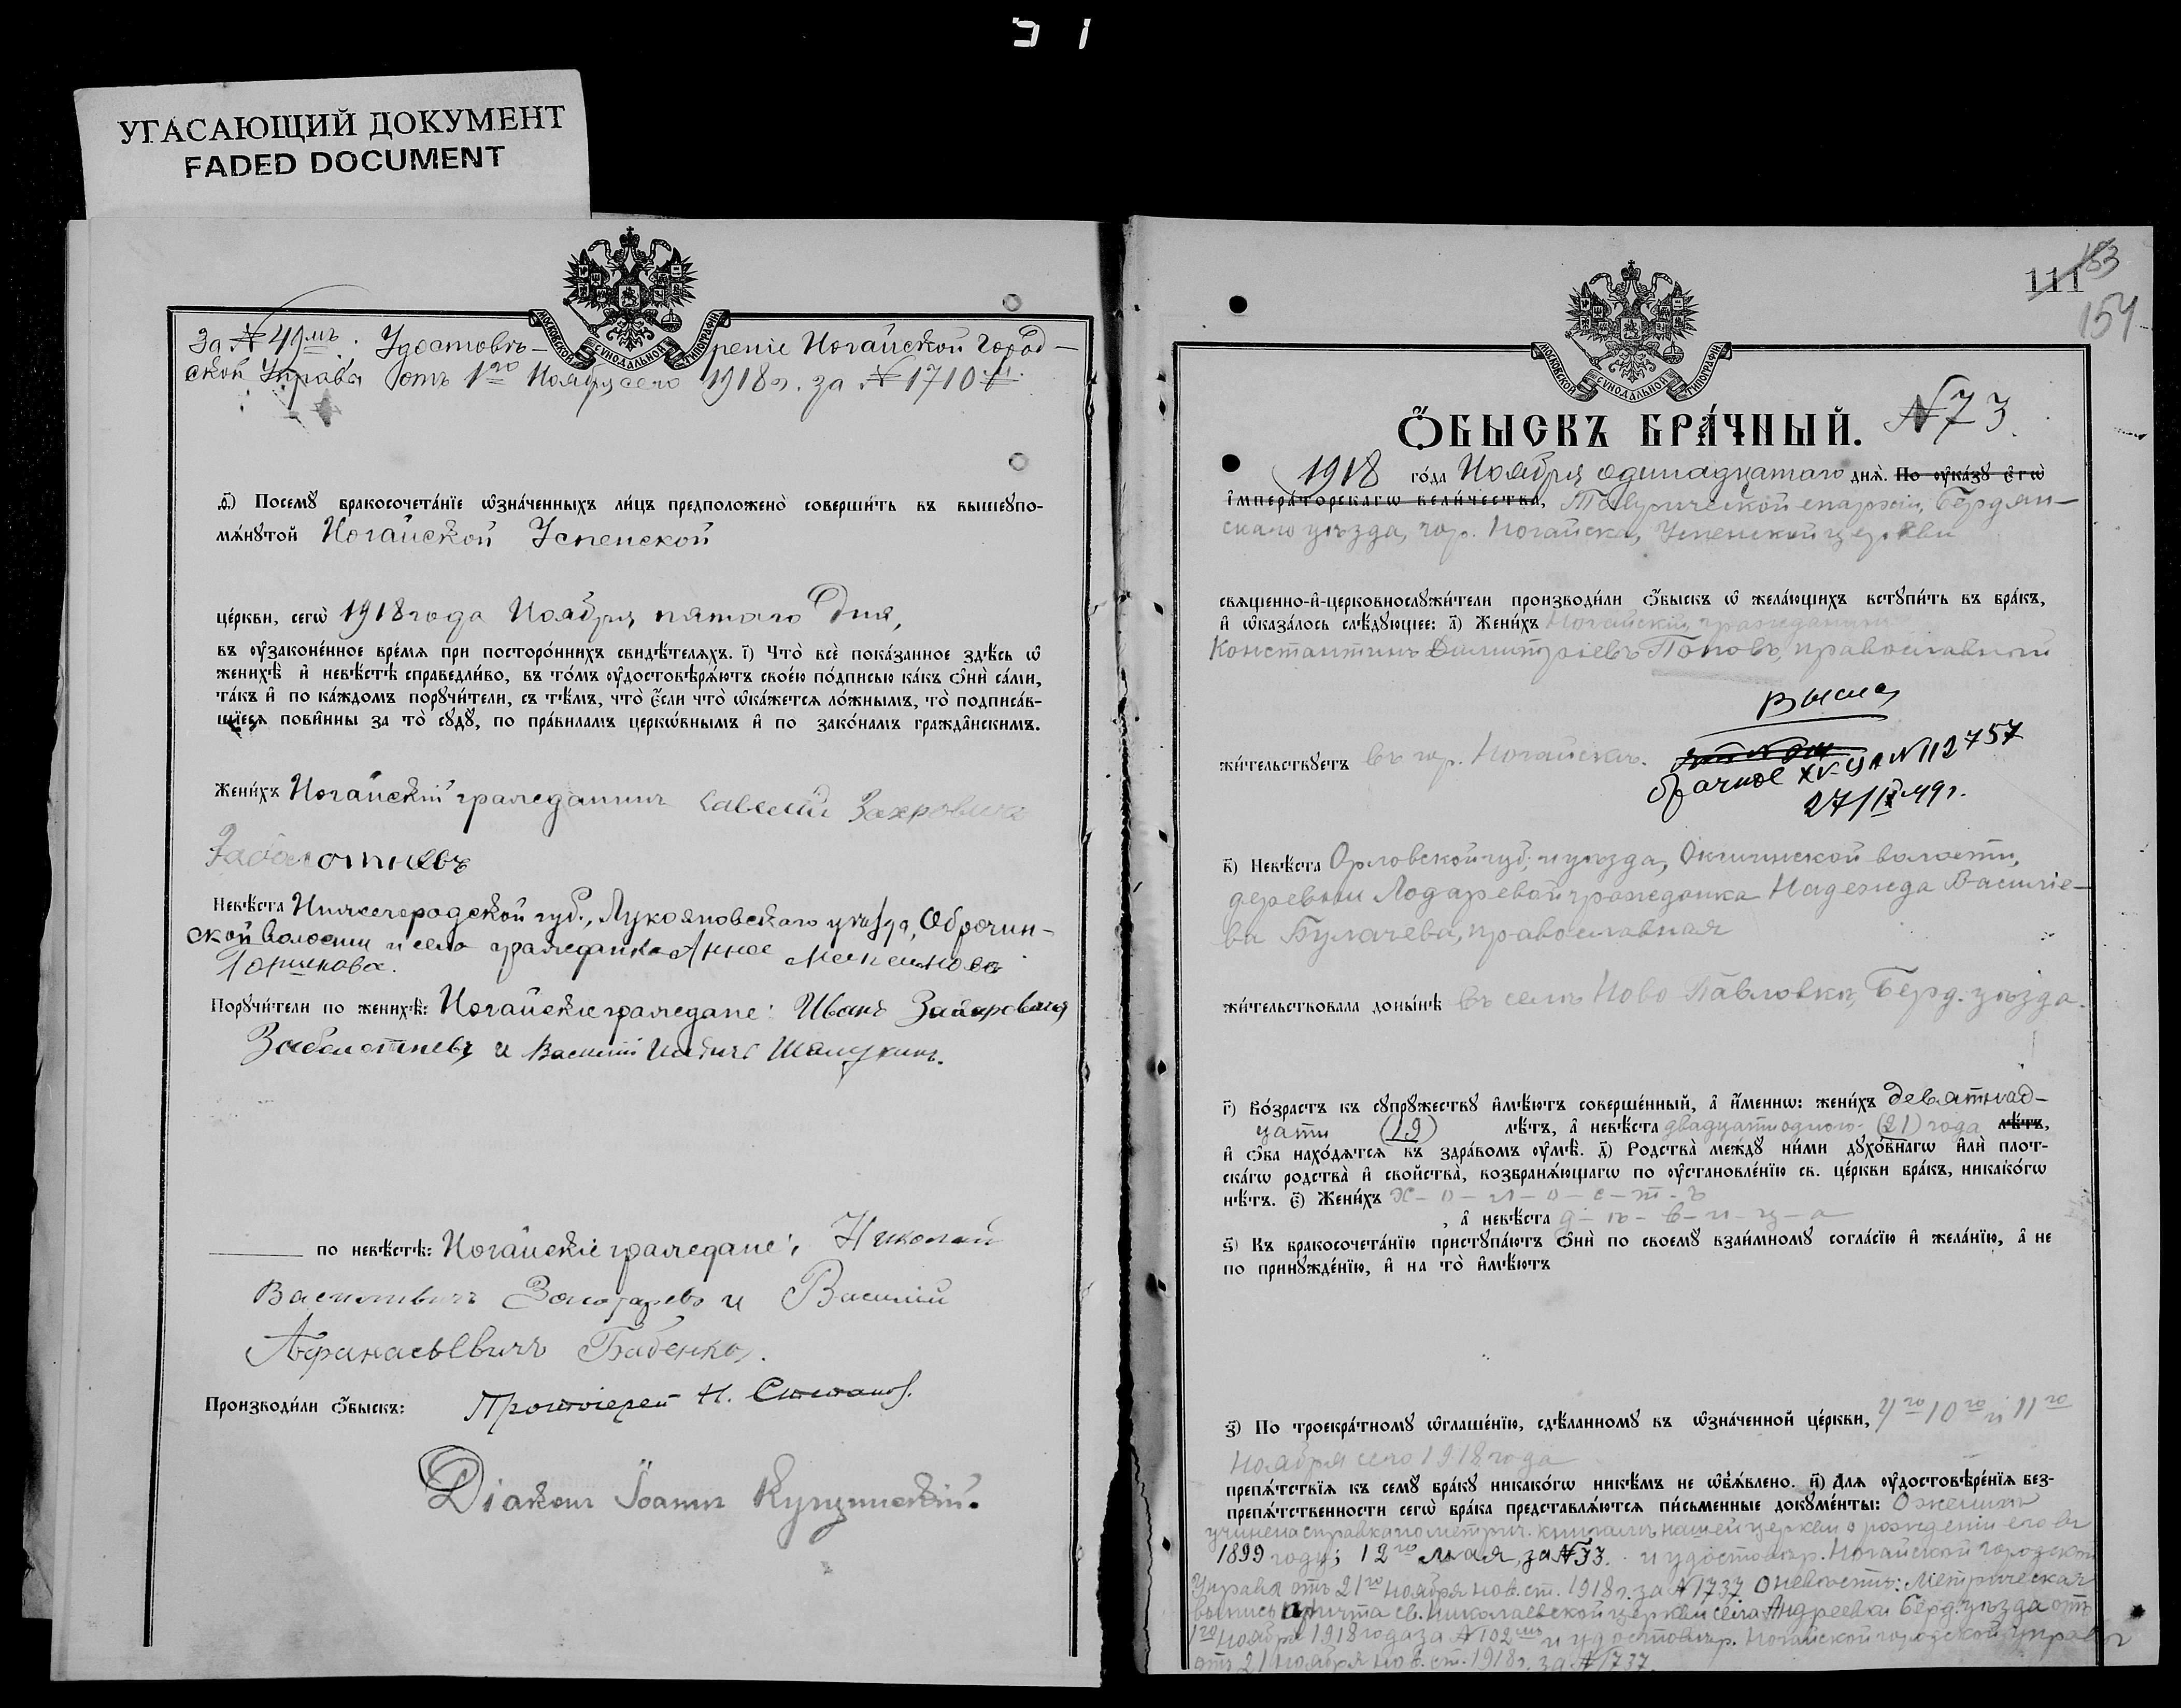 УГАСАЮЩИЙ ДОКУМЕНТ
FADED DOCUMENT
За № 49мъ. Удостовѣ- реніе Ногайской город-
ской Управы отъ 1го Ноября сего 1918 г. за № 1710
МОСКОВСКОЙ СѴНОДАЛЬНОЙ ТИПОГРАФІИ
д҃) Посемꙋ бракосочета́нїе ѡ҆зна́ченныхъ ли́цъ предположено̀ соверши́ть въ вышеꙋпо-
мѧ́нꙋтой Ногайской Успенской
це́ркви, сегѡ̀ 1918 года Ноября пятаго Дня,
въ ᲂу҆законе́нное вре́мѧ при посторо́ннихъ свидѣ́телѧхъ. і҃) Что̀ всѐ пока́занное здѣ́сь ѡ҆
женихѣ̀ и҆ невѣ́стѣ справедли́во, въ то́мъ ᲂу҆достовѣрѧ́ютъ свое́ю по́дписью ка́къ ѻ҆нѝ са́ми,
та́къ и҆ по ка́ждомъ порꙋчи́тели, съ тѣ́мъ, что̀ є҆́сли что̀ ѡ҆ка́жетсѧ ло́жнымъ, то̀ подписа́в-
шїесѧ пови́нны за то̀ сꙋдꙋ̀, по пра́виламъ церкѡ́внымъ и҆ по зако́намъ гражда́нскимъ.
Жени́хъ Ногайскій гражданинъ Савелій Захаровичъ
Заболотневъ
Невѣ́ста Нижегородской губ., Лукояновскаго уѣзда, Оброчин-
ской волости и села гражданка Анна
Порꙋчи́тели по женихѣ̀: Ногайскіе граждане: Иванъ Захаровичъ
Заболотневъ и Василій
по невѣ́стѣ: Ногайскіе граждане: Николай
Васильевичъ Золотаревъ и Василій
Афанасьевичъ Бабенко.
Производи́ли ѻ҆́быскъ: Протоіерей Н. Стефанов.
Діаконъ Іоаннъ
111
153
154
МОСКОВСКОЙ СѴНОДАЛЬНОЙ ТИПОГРАФІИ
Ѻ҆́БЫСКЪ БРА́ЧНЫЙ. № 73.
1918 го́да Ноября одинадцатаго днѧ̀. По ᲂу҆ка́зꙋ є҆гѡ̀
і҆мпера́торскагѡ вели́чества, Таврической епархіи, Бердян-
скаго уѣзда, гор. Ногайска, Успенской церкви
свѧще́нно-и҆-церковнослꙋжи́тели производи́ли ѻ҆́быскъ ѡ҆ жела́ющихъ встꙋпи́ть въ бра́къ,
и҆ ѡ҆каза́лось слѣ́дꙋющее: а҃) Жени́хъ Ногайскій гражданинъ
Константинъ Димитріевъ Поповъ, православный
жи́тельствꙋетъ въ гор. Ногайскѣ.
брачное № 112757
27/II 49 г.
в҃) Невѣ́ста Орловской губ. и уѣзда, волости,
деревни Лодаревой гражданка Надежда Василіе-
ва Булачева, православная
жи́тельствовала доны́нѣ въ селѣ Ново Павловкѣ, Берд. уѣзда.
г҃) Во́зрастъ къ сꙋпрꙋ́жествꙋ и҆мѣ́ютъ соверше́нный, а҆ и҆́меннѡ: жени́хъ девятнад-
цати (19) лѣ́тъ, а҆ невѣ́ста двадцати одного (21) года лѣ́тъ,
и҆ ѻ҆́ба нахо́дѧтсѧ въ здра́вомъ ᲂу҆мѣ̀. д҃) Родства̀ междꙋ̀ ни́ми дꙋхо́внагѡ и҆лѝ плот-
ска́гѡ родства̀ и҆ свойства̀, возбранѧ́ющагѡ по ᲂу҆становле́нїю св. це́ркви бра́къ, никако́гѡ
нѣ́тъ. є҃) Жени́хъ х-о-л-о-с-т-ъ
, а҆ невѣ́ста д-ѣ-в-и-ц-а
ѕ҃) Къ бракосочета́нїю пристꙋпа́ютъ ѻ҆нѝ по своемꙋ̀ взаи́мномꙋ согла́сїю и҆ жела́нїю, а҆ не
по принꙋжде́нїю, и҆ на то̀ и҆мѣ́ютъ
з҃) По троекра́тномꙋ ѡ҆глаше́нїю, сдѣ́ланномꙋ въ ѡ҆зна́ченной це́ркви, 4го 10го и 11го
Ноября сего 1918 года
препѧ́тствїѧ къ семꙋ̀ бра́кꙋ никако́гѡ никѣ́мъ не ѡ҆б̾ѧ́влено. и҃) Длѧ ᲂу҆достовѣре́нїѧ без-
препѧ́тственности сегѡ̀ бра́ка представлѧ́ютсѧ пи́сьменные докꙋме́нты: О женихѣ
учинена справка по метрич. книгамъ нашей церкви о рожденіи его въ
1899 году; 12го мая, за № 33. и удостовѣр. Ногайской городской
Управы отъ 21го Ноября нов. ст. 1918 г. за № 1737 О невѣстѣ: Метрическая
выпись причта св. Николаевской церкви села Андреевки Берд. уѣзда отъ
1го Ноября 1918 года за № 102 и удостовѣр. Ногайской городской управы
отъ 21 Ноября нов. ст. 1918 г. за № 1737.